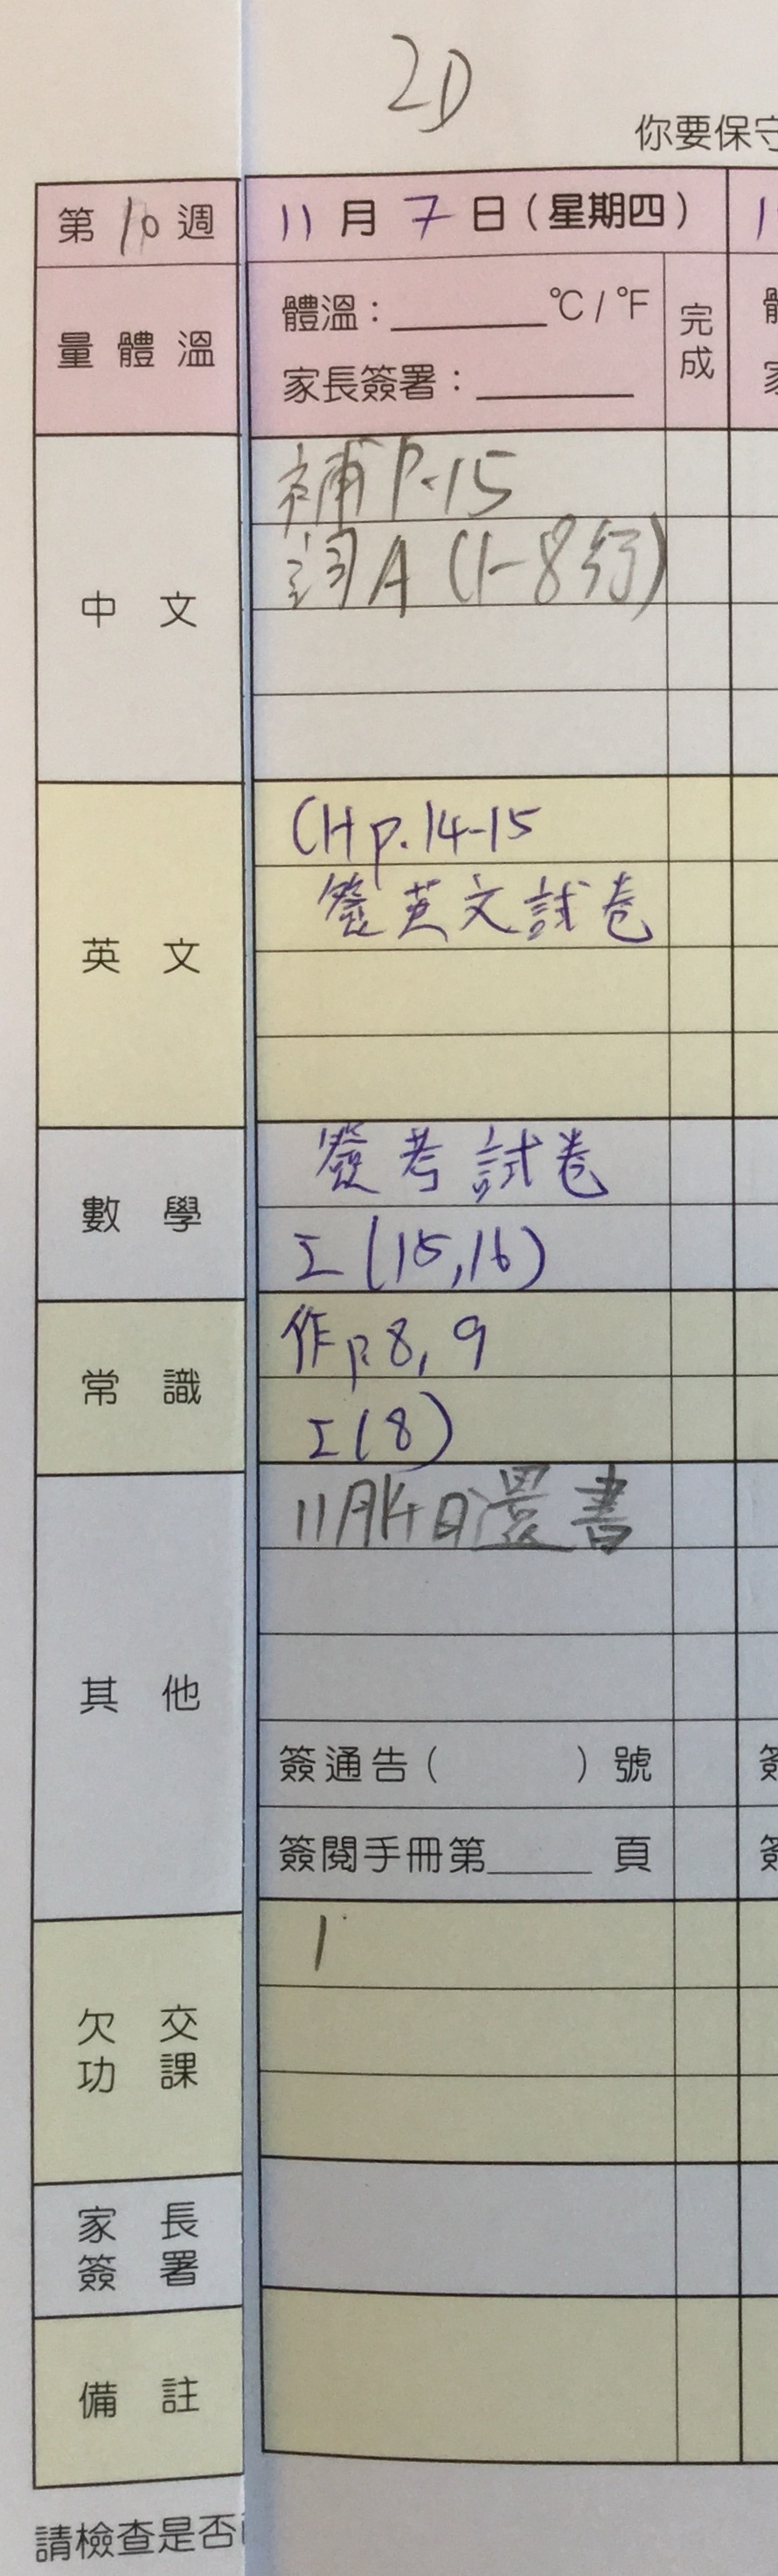 2D
你要保守
第10週
11月7日(星期四)
量體溫
體溫：______°C / °F
家長簽署：______
完成
中文
補P.15
詞A (1-8行)
英文
CH p.14-15
簽英文試卷
數學
簽考試卷
工(15,16)
常識
作p.8, 9
工(8)
其他
11月14日還書
簽通告( )號
簽閱手冊第____頁
欠交功課
1
家長簽署
備註
請檢查是否